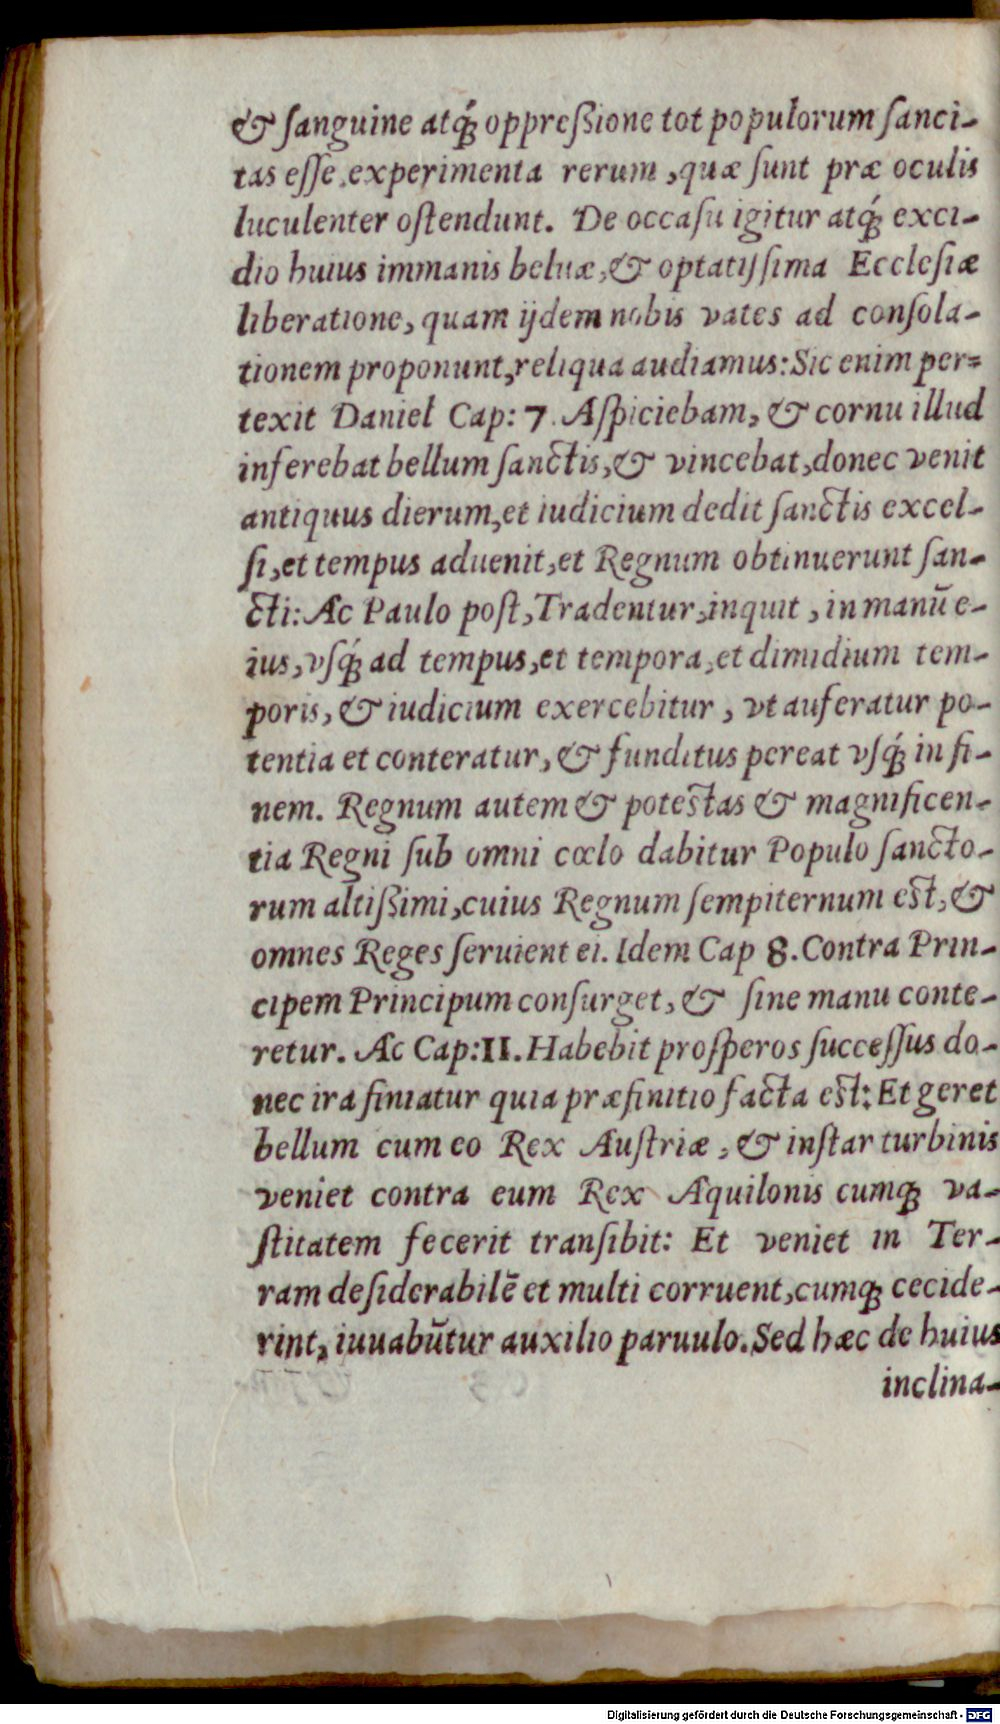 & ſanguine atq́; oppreſſione tot populorum ſanci-
tas eſſe, experimenta rerum, quæ ſunt præ oculis
luculenter oſtendunt. De occaſu igitur atq́; exci-
dio huius immanis beluæ, & optatiſſima Eccleſiæ
liberatione, quam ijdem nobis vates ad conſola-
tionem proponunt, reliqua audiamus: Sic enim per-
texit Daniel Cap: 7. Aſpiciebam, & cornu illud
inferebat bellum ſanctis, & vincebat, donec venit
antiquus dierum, et iudicium dedit ſanctis excel-
ſi, et tempus aduenit, et Regnum obtinuerunt ſan-
cti: Ac Paulo poſt, Tradentur, inquit, in manū e-
ius, vſq́; ad tempus, et tempora, et dimidium tem-
poris, & iudicium exercebitur, vt auferatur po-
tentia et conteratur, & funditus pereat vſq́; in fi-
nem. Regnum autem & poteſtas & magnificen-
tia Regni ſub omni cœlo dabitur Populo ſancto-
rum altiſſimi, cuius Regnum ſempiternum eſt, &
omnes Reges ſeruient ei. Idem Cap 8. Contra Prin-
cipem Principum conſurget, & ſine manu conte-
retur. Ac Cap: II. Habebit proſperos ſucceſſus do-
nec ira finiatur quia præfinitio facta eſt: Et geret
bellum cum eo Rex Auſtriæ, & inſtar turbinis
veniet contra eum Rex Aquilonis cumq; va-
ſtitatem fecerit tranſibit: Et veniet in Ter-
ram deſiderabilē et multi corruent, cumq; cecide-
rint, iuuabūtur auxilio paruulo. Sed hæc de huius
inclina-
Digitalisierung gefördert durch die Deutsche Forschungsgemeinschaft - DFG